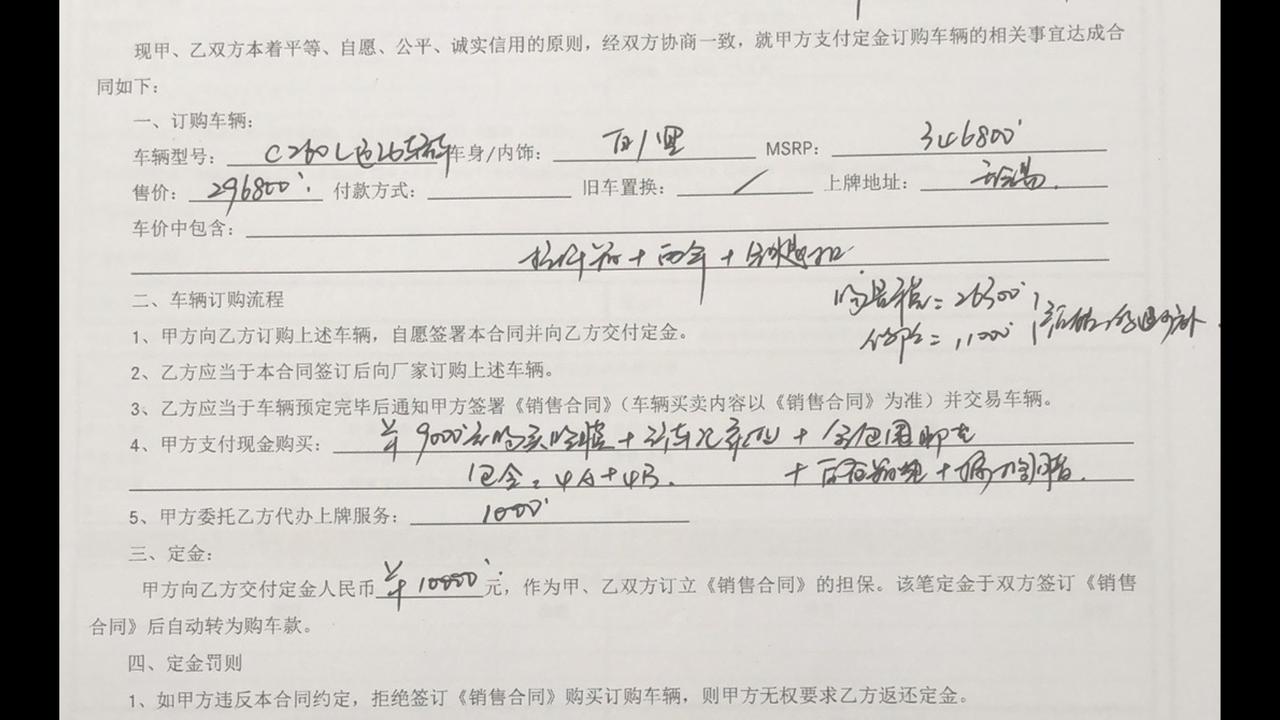 现甲、乙双方本着平等、自愿、公平、诚实信用的原则，经双方协商一致，就甲方支付定金订购车辆的相关事宜达成合
同如下：
一、订购车辆：
车辆型号：C260L 车身/内饰：白/黑 MSRP：346800
售价：296800 付款方式： 旧车置换：／ 上牌地址：无锡
车价中包含：
+两年+
二、车辆订购流程
购置税=26300
1、甲方向乙方订购上述车辆，自愿签署本合同并向乙方交付定金。
保险=11000
2、乙方应当于本合同签订后向厂家订购上述车辆。
3、乙方应当于车辆预定完毕后通知甲方签署《销售合同》（车辆买卖内容以《销售合同》为准）并交易车辆。
4、甲方支付现金购买：￥9000元购买
包含：4A+4B.
5、甲方委托乙方代办上牌服务：1000
三、定金：
甲方向乙方交付定金人民币￥10000元，作为甲、乙双方订立《销售合同》的担保。该笔定金于双方签订《销售
合同》后自动转为购车款。
四、定金罚则
1、如甲方违反本合同约定，拒绝签订《销售合同》购买订购车辆，则甲方无权要求乙方返还定金。